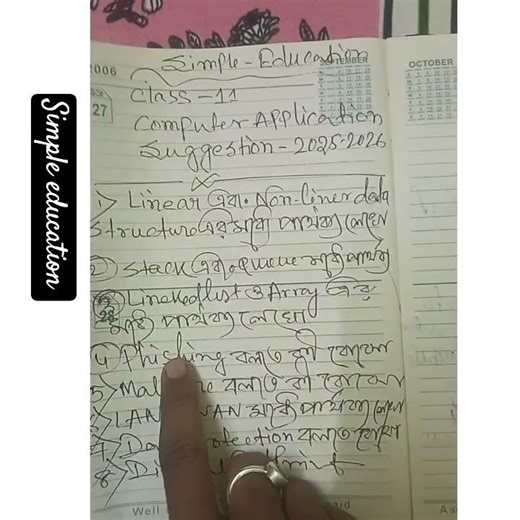 Simple education
2006
SEPTEMBER
OCTOBER
27
Simple - Education
Class - 11
Computer Application
Suggestion - 2025-2026
1) Linear এবং Non-Liner data
Structure এর মধ্যে পার্থক্য লেখো
2) Stack এবং queue মধ্যে পার্থক্য
Linked list ও Array এর
28
মধ্যে পার্থক্য লেখো
4) Phishing বলতে কী বোঝো
5) Mal re বলতে কী বোঝো
LAN WAN মধ্যে পার্থক্য লেখো
otection বলতে বোঝো
8) Di
Well
aid
As